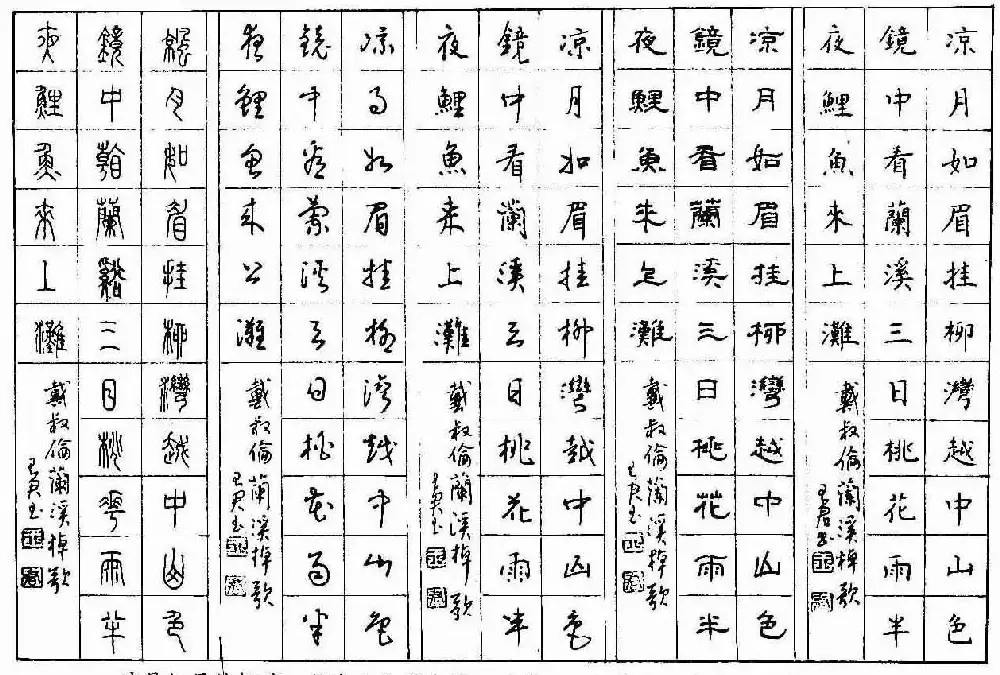 凉月如眉挂柳灣越中山色
鏡中看蘭溪三日桃花雨半
夜鯉魚來上灘
戴叔倫蘭溪棹歌
凉月如眉挂柳灣越中山色
鏡中看蘭溪三日桃花雨半
夜鯉魚来上灘
戴叔倫蘭溪棹歌
凉月如眉挂柳灣越中山色
鏡中看蘭溪三日桃花雨半
夜鯉魚来上灘
戴叔倫蘭溪棹歌
凉月如眉挂柳灣越中山色
鏡中看蘭溪三日桃花雨半
夜鯉魚来上灘
戴叔倫蘭溪棹歌
凉月如眉挂柳灣越中山色
鏡中看蘭溪三日桃花雨半
夜鯉魚來上灘
戴叔倫蘭溪棹歌